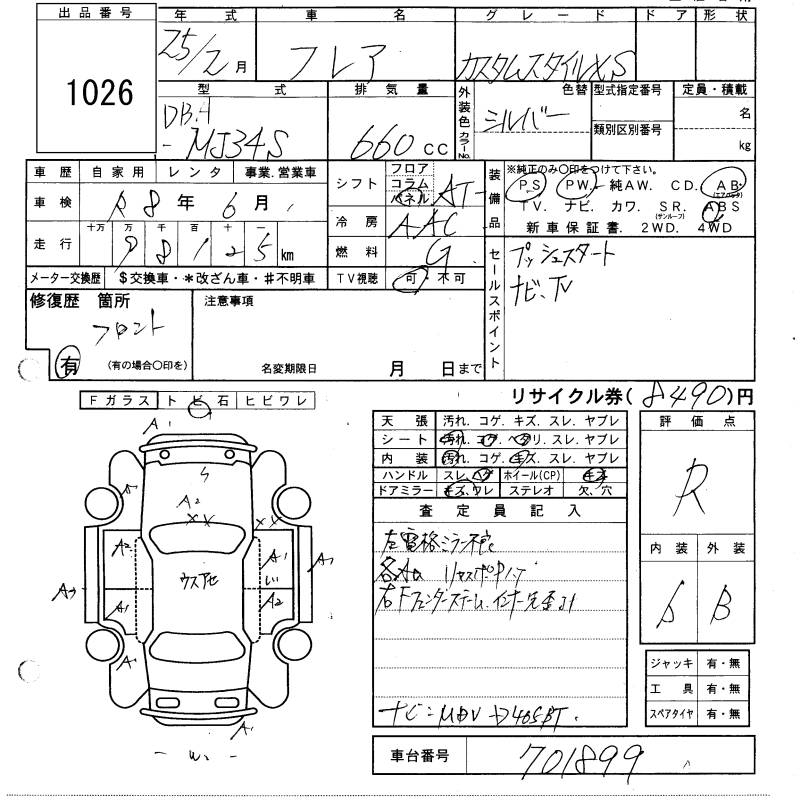 出品番号
1026
年式 車名 グレード ドア 形状
25/2月 フレア カスタムスタイルXS
型式 排気量 外装色 カラーNo. 色替 型式指定番号 定員・積載
DBA-MJ34S 660cc シルバー 類別区別番号 名 kg
車歴 自家用 レンタ 事業.営業車
車検 R8年6月
走行 十万 万 千 百 十 一
98125km
メーター交換歴 $交換車・*改ざん車・#不明車
シフト フロア コラム パネル AT
冷房 AAC
燃料 G
TV視聴 可・不可
装備品 ※純正のみ○印をつけて下さい。
PS. PW. 純AW. CD. AB(エアバック)
TV. ナビ. カワ. SR.(サンルーフ) ABS
新車保証書. 2WD. 4WD
セールスポイント
プッシュスタート
ナビ、TV
修復歴 箇所
フロント
有 (有の場合○印を)
注意事項
名変期限日 月 日まで
リサイクル券(8490)円
Fガラス トビ石 ヒビワレ
A1
A2
XX
XX
A2
A1
A1
A2
ウスアセ
A1
A1
- W. -
天張 汚れ. コゲ. キズ. スレ. ヤブレ
シート 汚れ. コゲ. ヘタリ. スレ. ヤブレ
内装 汚れ. コゲ. キズ. スレ. ヤブレ
ハンドル スレ. ホイール(CP) キズ
ドアミラー キズ. ワレ ステレオ 欠、穴
査定員記入
左電格ミラー不良
各Aム
右Fフェンダーステー
ナビ:MDV-D405BT.
評価点
R
内装 外装
B
ジャッキ 有・無
工具 有・無
スペアタイヤ 有・無
車台番号 701899